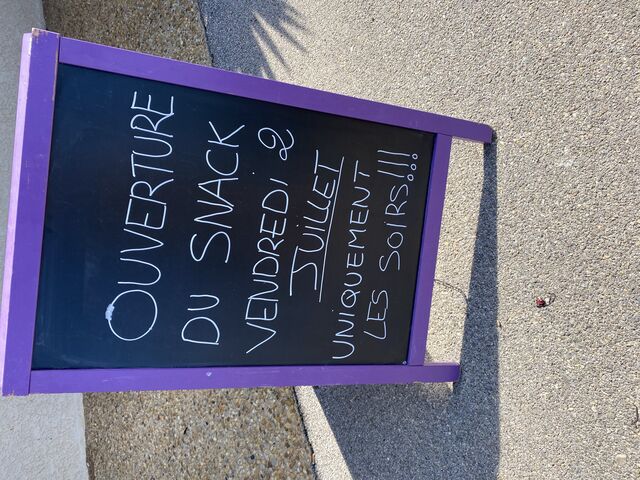 OUVERTURE
DU SNACK
VENDREDi 2
JUILLET
UNIQUEMENT
LES SOIRS!!!